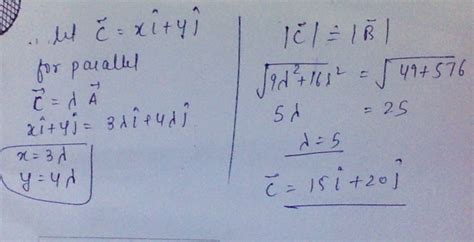 ∴ let C⃗ = xî + yĵ
for parallel
C⃗ = λ A⃗
xî + yĵ = 3λî + 4λĵ
x = 3λ
y = 4λ
|C⃗| = |B⃗|
√9λ² + 16λ² = √49 + 576
5λ = 25
λ = 5
C⃗ = 15î + 20ĵ